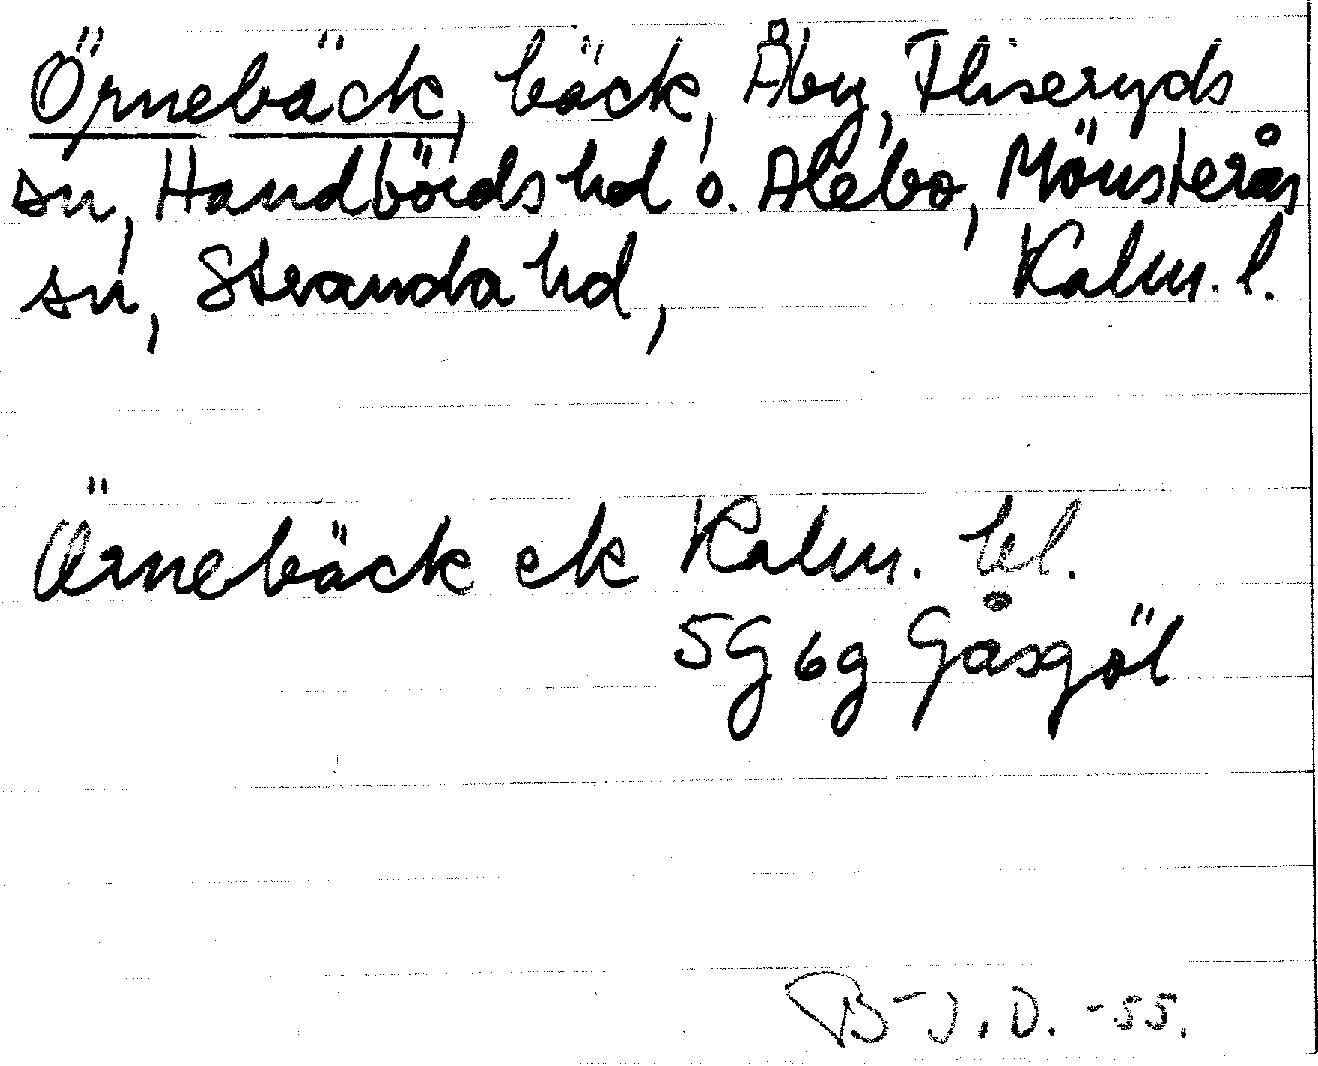 Örnebäck, bäck, Åby, Fliseryds
sn, Handbörds hd o. Alebo, Mönsterås
sn, Stranda hd, Kalm. l.
Örnebäck ek Kalm. bl.
5G 6g Gåsgöl
B-J.D. -55.